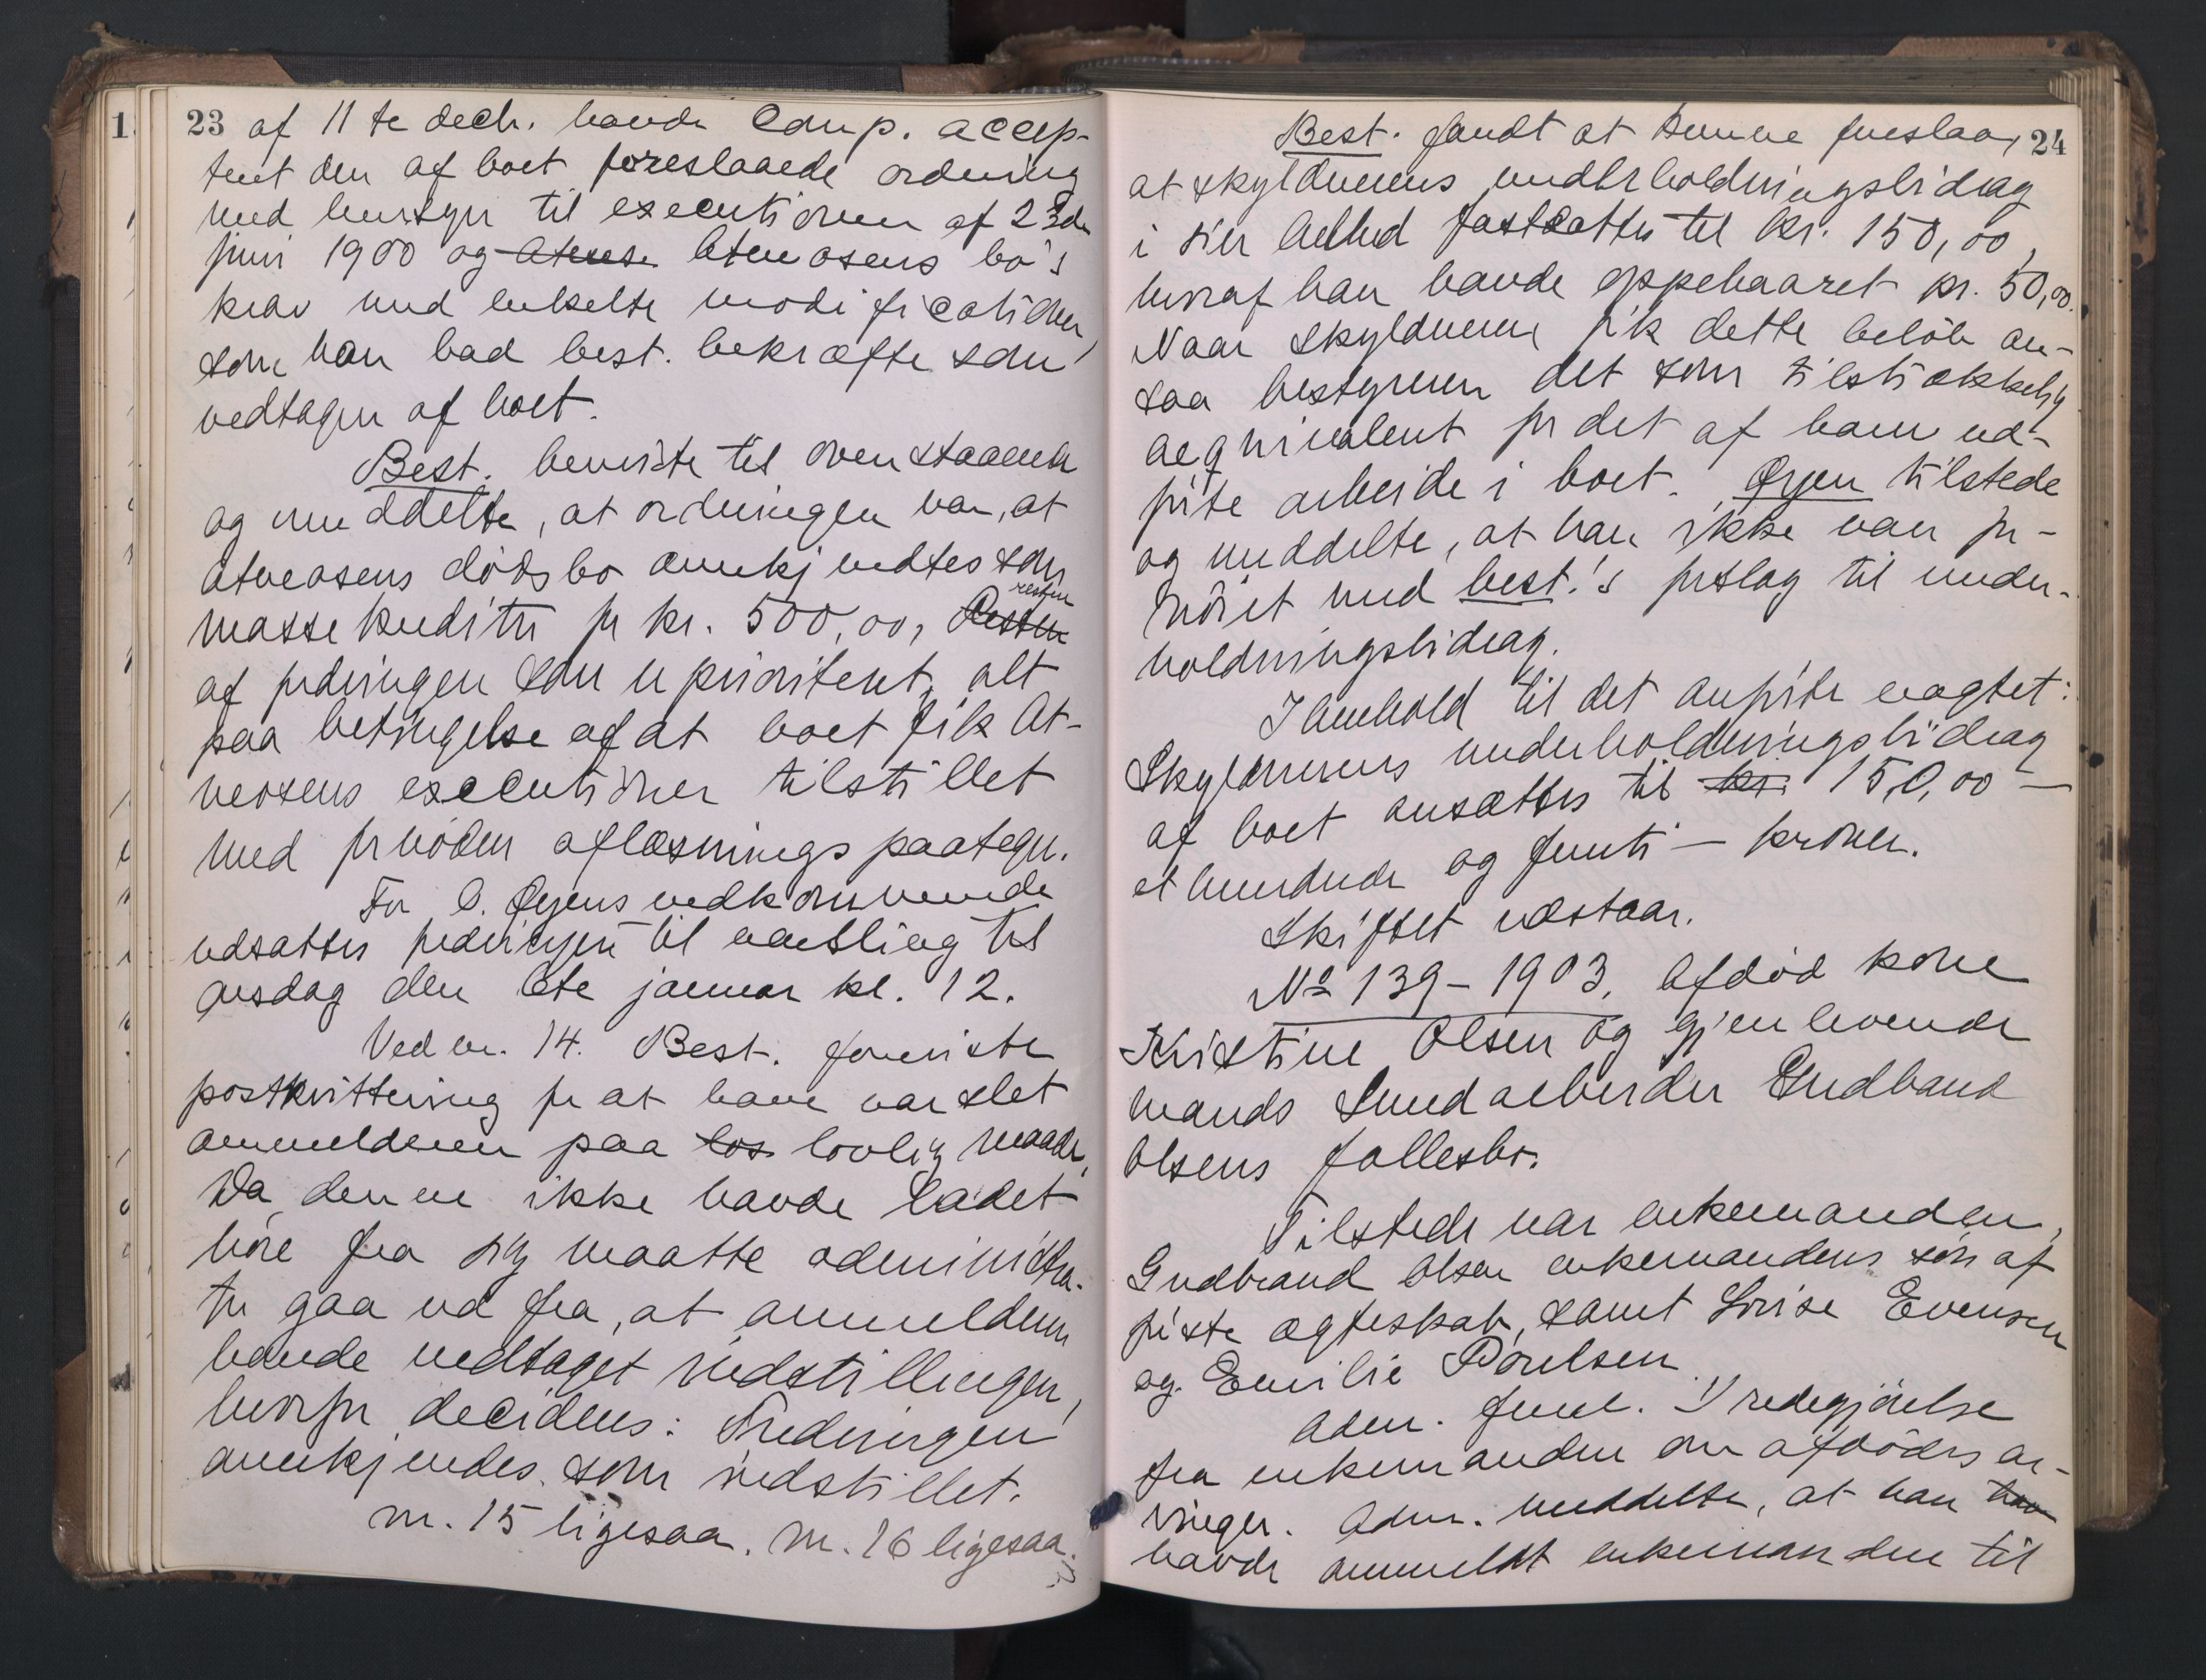 23 af 11te decb. havde comp. accep-
tert den af boet foreslaaede ordning
med hensyn til executionen af 23de
juni 1900 og Atneosens bo's
krav med enkelte modificationer,
som han bad best. bekræfte som
vedtagen af boet.
Best. henviste til ovenstaaende
og meddelte, at ordningen var, at
Atneosens dødsbo anerkjendtes som
massekreditor for kr. 500,00, resten
af fordringen som uprioritert, alt
paa betingelse af at boet fik At-
neosens executioner tilstillet
med fornöden aflæsningspaategn.
For O. Øyens vedkommende
udsattes fordringen til varsling til
onsdag den 6te januar kl. 12.
Ved nr. 14. Best. foreviste
postkvittering for at have varslet
anmelderen paa lovlig maade.
Da denne ikke havde ladet
höre fra sig maatte administra-
tor gaa ud fra, at anmelderen
havde vedtaget indstillingen,
hvorfor decideres: Fordringen
anerkjendes som indstillet.
nr. 15 ligesaa. nr. 16 ligesaa.
Best. fandt at kunne foreslaa, 24
at skyldnerens underholdningsbidrag
i sin helhed fastsattes til kr. 150,00,
hvoraf han havde oppebaaret kr. 50,00.
Naar skyldneren fik dette belöb an-
saa bestyreren det som tilstrækkelig
aeqvivalent for det af ham ud-
förte arbeide i boet. Øyen tilstede
og meddelte, at han ikke var for-
nöiet med best.'s forslag til under-
holdningsbidrag.
I henhold til det anförte vagtet:
Skyldnerens underholdningsbidrag
af boet ansættes til kr. 150,00 —
et hundrede og femti — kroner.
Skiftet udstaar.
No 139 - 1903. Afdöd kone
Kristine Olsen og gjenlevende
mands Gudbrand
Olsens fællesbo.
Tilstede var enkemanden,
Gudbrand Olsen enkemandens sön af
förste ægteskab, samt Lovise Evensen
og Emilie Poulsen.
Adm. freml. 1) redegjörelse
fra enkemanden om afdödes ar-
vinger. Adm. meddelte, at han
havde anmeldt enkemanden til